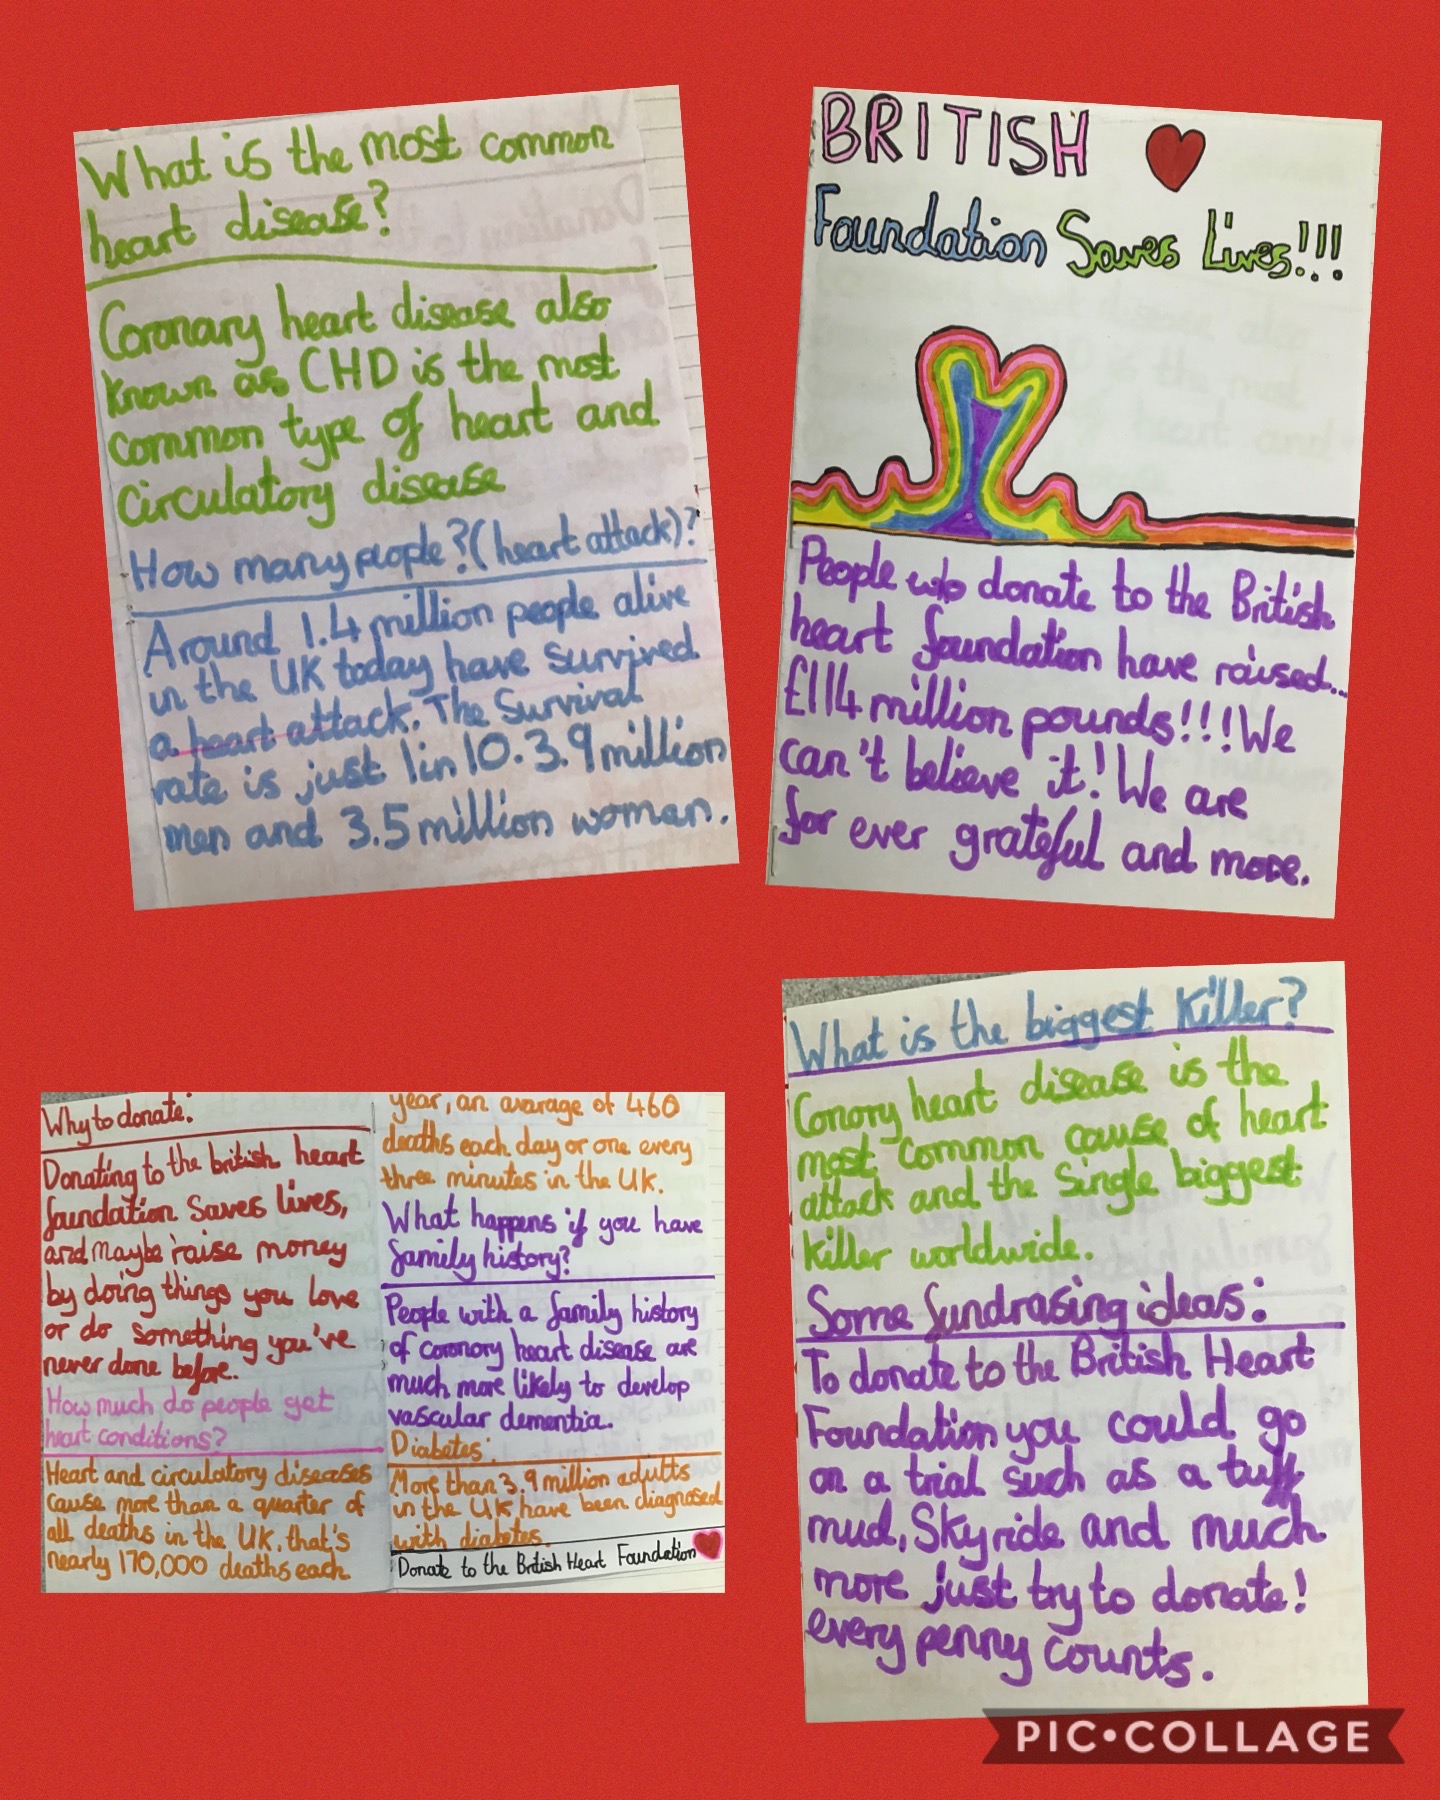 What is the most common
heart disease?
Coronary heart disease also
known as CHD is the most
common type of heart and
circulatory disease
How many people?(heart attack)?
Around 1.4 million people alive
in the UK today have survived
a heart attack. The Survival
rate is just 1in 10. 3.9 million
men and 3.5 million woman.
BRITISH
Foundation Saves Lives!!!
People who donate to the British
heart foundation have raised...
£114 million pounds!!! We
can't believe it! We are
for ever grateful and more.
Why to donate:
Donating to the british heart
foundation Saves lives,
and maybe raise money
by doing things you love
or do something you've
never done before.
How much do people get
heart conditions?
Heart and circulatory diseases
cause more than a quarter of
all deaths in the UK, that's
nearly 170,000 deaths each
year, an avarage of 460
deaths each day or one every
three minutes in the UK.
What happens if you have
family history?
People with a family history
of coronory heart disease are
much more likely to develop
vascular dementia.
Diabetes:
More than 3.9 million adults
in the UK have been diagnosed
with diabetes.
Donate to the British Heart Foundation
What is the biggest killer?
Conory heart disease is the
most common cause of heart
attack and the Single biggest
killer worldwide.
Some fundrasing ideas:
To donate to the British Heart
Foundation you could go
on a trial such as a tuff
mud, Sky ride and much
more just try to donate!
every penny counts.
PIC•COLLAGE